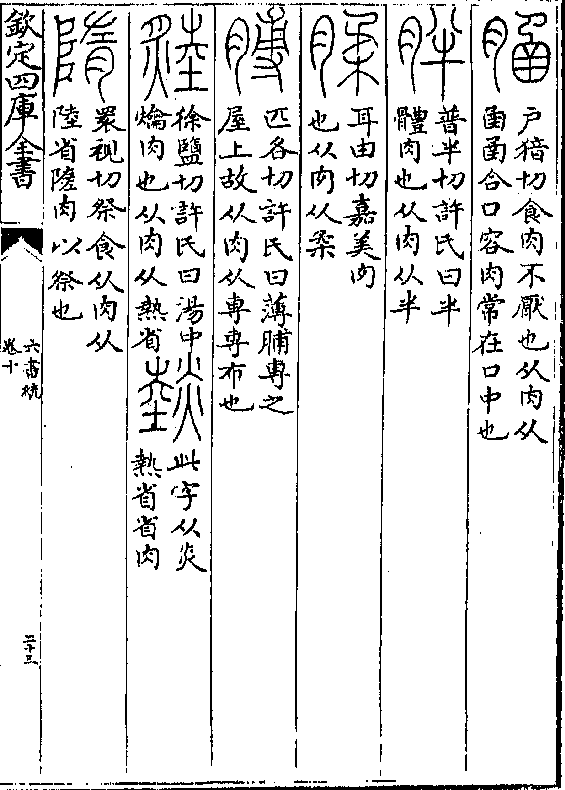 户切食肉不厭也从肉从
圅圅合口容肉常在口中也
胖
普半切許氏曰半
體肉也从肉从半
腬
耳由切嘉美肉
也从肉从柔
膊
匹各切許氏曰薄脯專之
屋上故从肉从尃尃布也
徐鹽切許氏曰湯中
爚肉也从肉从熱省
此字从炎
熱省省肉
隋
衆視切祭食从肉从
陸省隓肉以祭也
欽定四庫全書
六書統
卷十
二十三